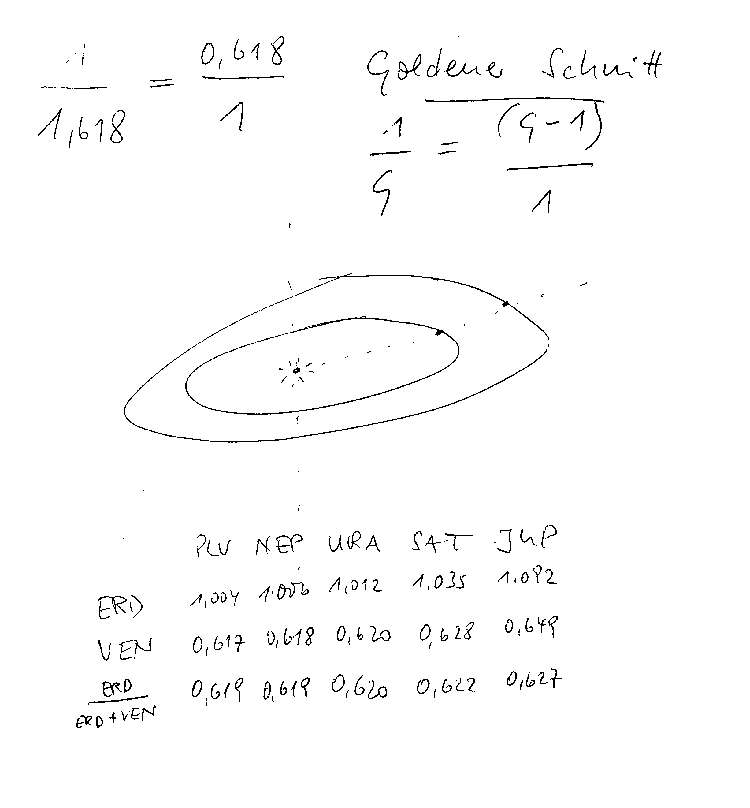 1 / 1,618 = 0,618 / 1
Goldener Schnitt
1 / G = (G-1) / 1
PLU NEP URA SAT JUP
ERD 1,004 1.006 1,012 1,035 1.092
VEN 0,617 0,618 0,620 0,628 0,649
ERD / ERD+VEN 0,619 0,619 0,620 0,622 0,627